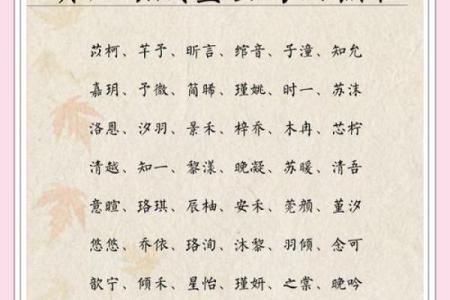 苡柯、芊予、昕言、绾音、子潼、知允
嘉玥、予微、简晞、瑾姚、时一、苏沫
洛恩、汐羽、景禾、梓乔、木冉、芯柠
清越、知一、黎漾、晚凝、苏暖、清吾
意暄、珞琪、辰柚、安禾、莞颜、堇汐
悠悠、乔依、珞洵、沐黎、羽倾、念可
歆宁、倾禾、星怡、瑾妍、之棠、晚吟